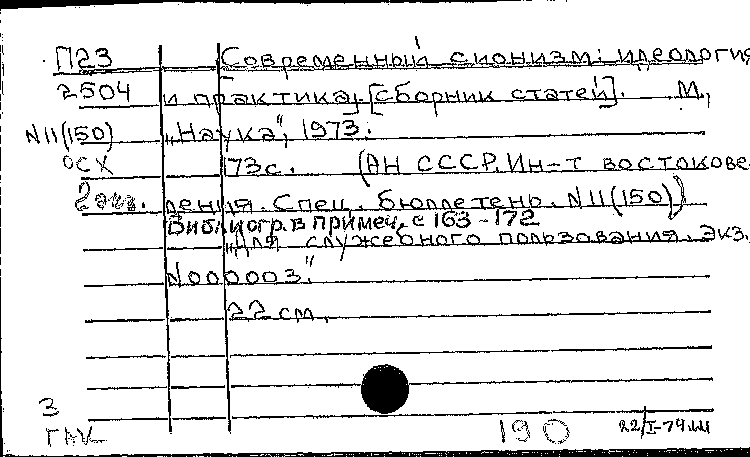 П23 Современный сионизм: идеология
2504 и практика. [Сборник статей]. М.,
N11(150) „Наука", 1973.
ОСХ 173с. (АН СССР. Ин-т востокове-
2экз. дения. Спец. бюллетень. N11(150))
Библиогр. в примеч. с 163-172
„Для служебного пользования. Экз.
N000003."
22 см.
3
190 22/I-74